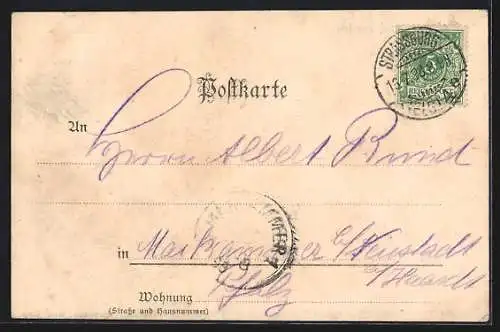 Postkarte
An
Herrn Albert Bund
in Maikammer b/Neustadt
a/Haardt
Pfalz
Wohnung
(Straße und Hausnummer)
STRASSBURG